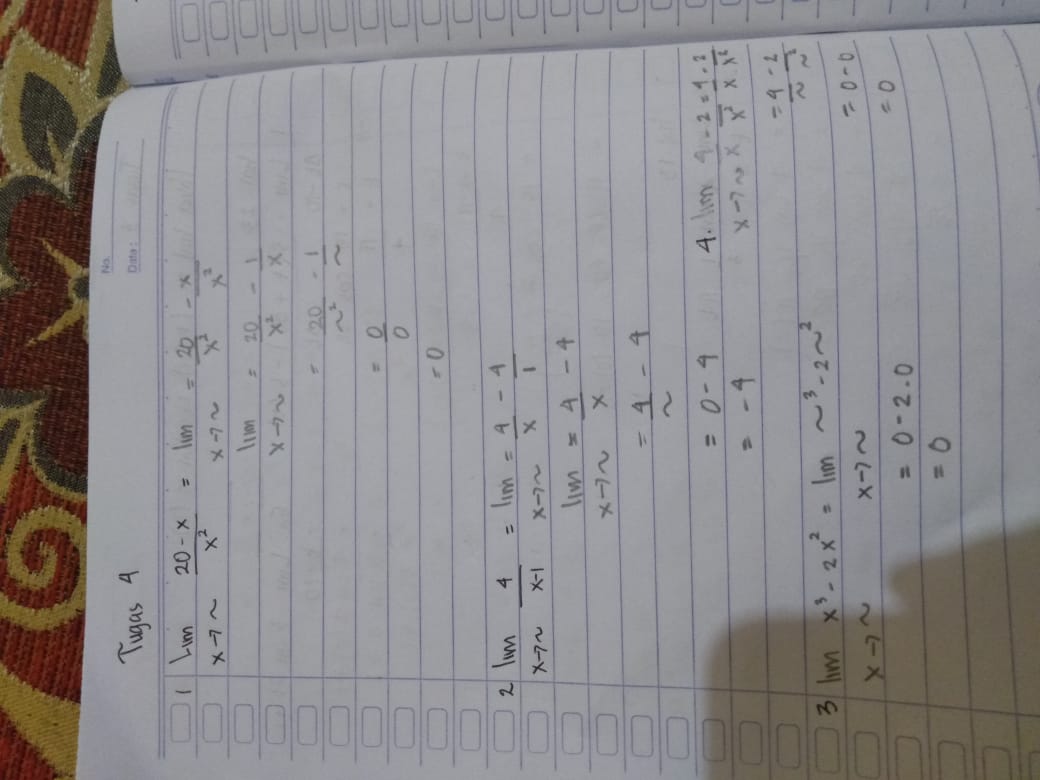 No.
Date:
Tugas 4
1 Lim x→~ (20-x)/x² = lim x→~ = 20/x² - x/x²
lim x→~ = 20/x² - 1/x
= 20/~² - 1/~
= 0/0
= 0
2 lim x→~ 4/(x-1) = lim x→~ = 4/x - 4/1
lim x→~ = 4/x - 4
= 4/~ - 4
= 0 - 4
= -4
3 lim x→~ x³ - 2x² = lim x→~ ~³ - 2~²
= 0 - 2.0
= 0
4. lim x→~ 4/x - 2/x² = 4/x - 2/x²
= 4/~ - 2/~²
= 0-0
= 0